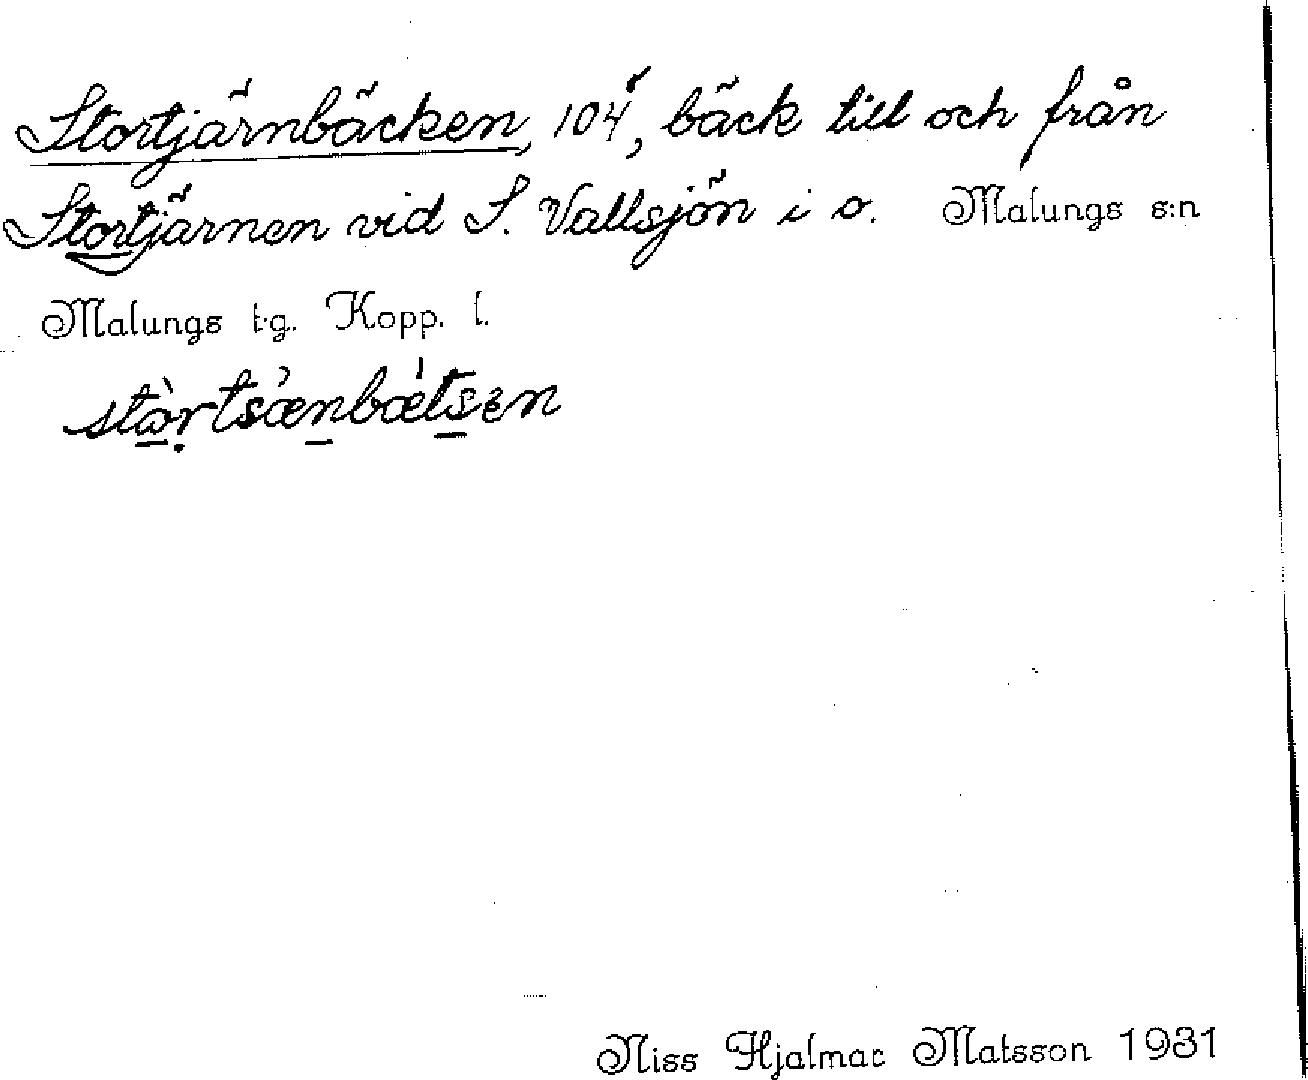 Stortjärnbäcken, 104, bäck till och från
Stortjärnen vid S. Vallsjön i o. Malungs s:n
Malungs t.g. Kopp. l.
stòrtsænbætsen
Niss Hjalmar Matsson 1931